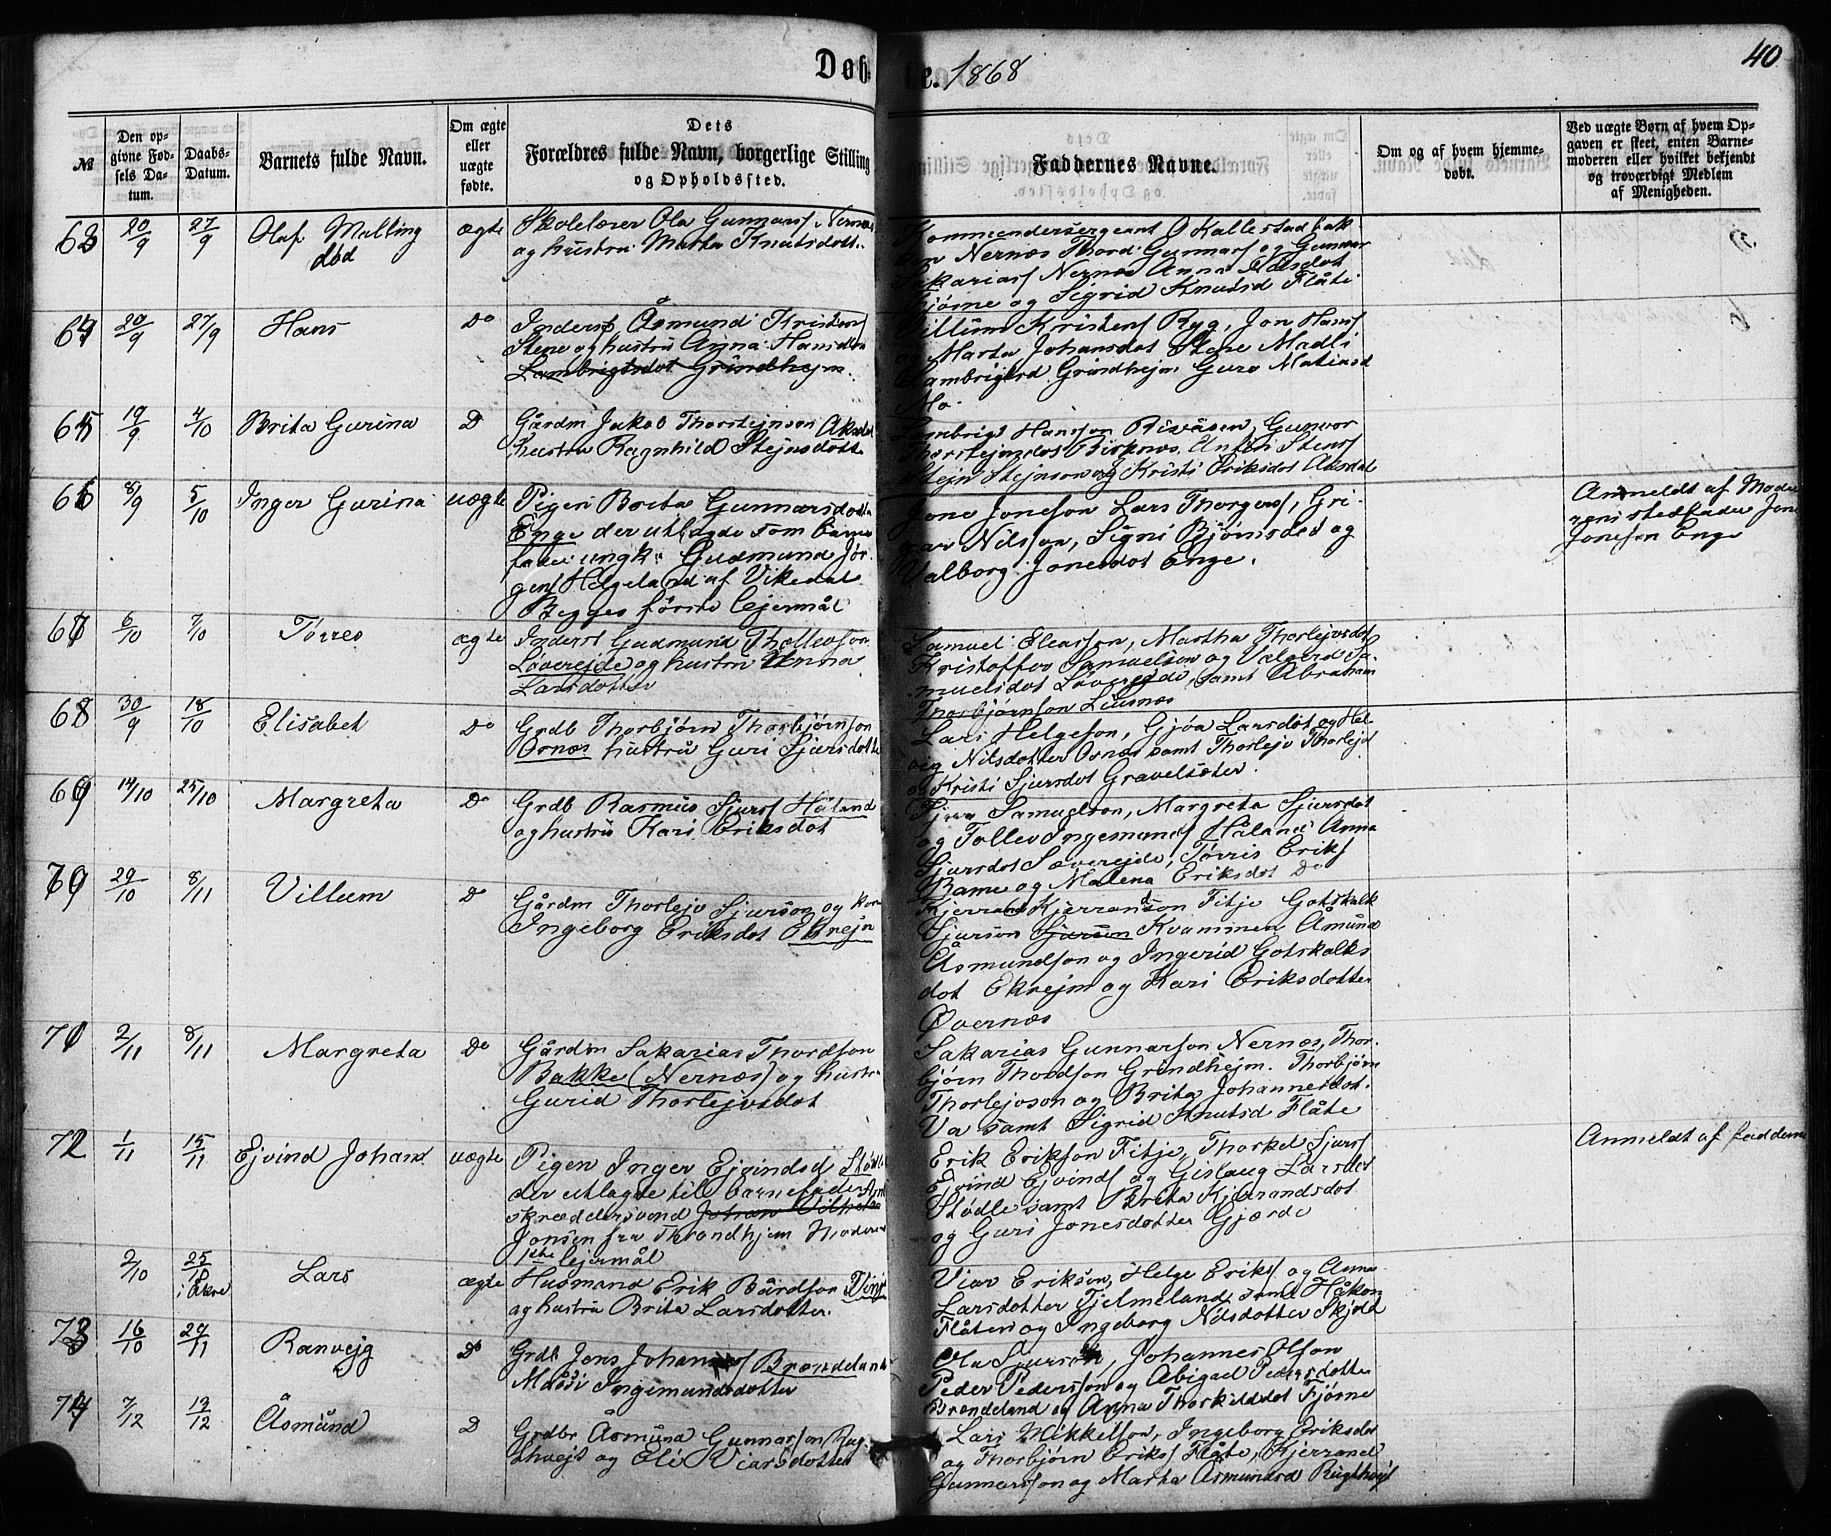 Døb
te. 1868
40
№
Den opgivne Fødsels Datum.
Daabs-Datum.
Barnets fulde Navn.
Om ægte eller uægte fødte.
Dets Forældres fulde Navn, borgerlige Stilling og Opholdssted.
Faddernes Navne.
Om og af hvem hjemmedøbt.
Ved uægte Børn af hvem Opgaven er skeet, enten Barnemoderen eller hvilket bekjendt og troværdigt Medlem af Menigheden.
63 20/9 27/9 Olaf Malling ægte
død
Skolelærer Ola Gunnars
og hustru Marta Knutsdott
Kommandersergeant O Kallestad
Nernæs Thord Gunnars og Gunnar
Sakarias Nernæs Anna
og Sigrid Knutsd Flåte
64 20/9 27/9 Hans Do
Inderst Åsmund Kristens
Stene og hustru Anna Hansdtr
Lambrigtsdot Grindhejm.
Villum Kristens Ryg, Jon Hans
Marta Johansdot Stene Madli
Lambrigtsd Grindhejm Guro Matiasd
Mo.
65 19/9 4/10 Brita Gurina D
Gårdm Jakob Thorstejnson
hustru Ragnhild Stejnsdott
Lambrigt Hansson Gunvor
Thorstejnsdot
Stejn Stejnson og Kristi Eriksdot
66 8/9 5/10 Inger Gurina uægte
Pigen Brita Gunnarsdotter
Enge der utlagde som barne
fader ungk. Gudmund Jør-
gens Helgeland af Vikedal
Begges første lejermål
Jone Joneson Lars Thorgers, Gri-
Nilsson, Signi Bjørnsdot og
Valborg Jonesdot Enge.
Anmeldt af Mode
rens stedfader Jone
Joneson Enge
67 6/10 7/10 Tørres ægte
Inderst Gudmund Thollevson
Løverejde og hustru Anna
Larsdotter
Samuel Eleasson, Martha Thorlejvsdot
Kristoffer Samuelson og Valgerd Sa-
muelsdot Løverejde, samt Abraham
Thorbjørnson
68 30/9 18/10 Elisabet Do
Grdb Thorbjørn Thorbjørnson
Ornæs hustru Guri Sjursdotter
Lars Helgeson, Gjøa Larsdot og Hel-
vig Nilsdotter samt Thorlejv Thorlejv
og Kristi Sjursdot Gravelsæter.
69 14/10 25/10 Margreta Do
Grdb Rasmus Sjurs Håland
og hustru Kari Eriksdot
Samuelson, Margreta Sjursdot
og Tollev Ingemunds Håland Anna
Sjursdot Sæverejde, Tørris Eriks
og Malena Eriksdot Do
70 29/10 8/11 Villum Do
Gårdm Thorlejv Sjurson og kone
Ingeborg Eriksdot Ekrejm
Kjerrand Kjerrandson Fitje Gotskalk
Sjurson Sjurson Kvammen Åsmund
Åsmundson og Ingerid Gotskalks
dot Ekrejm og Kari Eriksdotter
Øvernæs
71 2/11 8/11 Margreta Do
Gårdm Sakarias Thordson
Bakke (Nernæs) og hustru
Gurid Thorlejvsdot
Sakarias Gunnarson Nernæs, Thor-
bjørn Thordson Grindhejm. Thorbjørn
Thorlejvson og Brita Johannesdot.
Va samt Sigrid Knutsd Flåte
72 1/11 15/11 Ejvind Johan uægte
Pigen Inger Ejvindsd Stødle
der utlagde til barnefader
skræddersvend Johan
Jonsen fra Throndhjem Moderens
1ste lejermål
Erik Erikson Fitje, Thorkel Sjurs
Ejvind Ejvinds og Gislaug Larsdot
Stødle samt Brita Kjerandsdot
og Guri Jonesdotter Gjærde
Anmeldt af fadderne
2/10 25/10 i Ekre Lars ægte
Husmand Erik Bårdson
og hustru Brita Larsdotter.
Viar Erikson, Helge Eriks og Anna
Larsdotter Fjelmeland, samt Håkon
Flåten og Ingeborg Nilsdotter Skjold
73 16/10 29/11 Ranvejg Do
Grdb Jens Johannes Brændeland
Massi Ingemundsdotter
Ola Sjurson, Johannes Olson
Peder Pederson og Abigael Pedersdotter
Brændeland og Anna Thorkildsdot Fjøsne
74 7/12 13/12 Åsmund D
Grdbr Åsmund Gunnarson Rug-
thvejt og Eli Viarsdotter
Lars Mikkelson, Ingeborg Eriksdot
og Thorbjørn Eriks Flåte, Kjerrand
Gunnarson og Marta Åsmundsd Rugthvejt